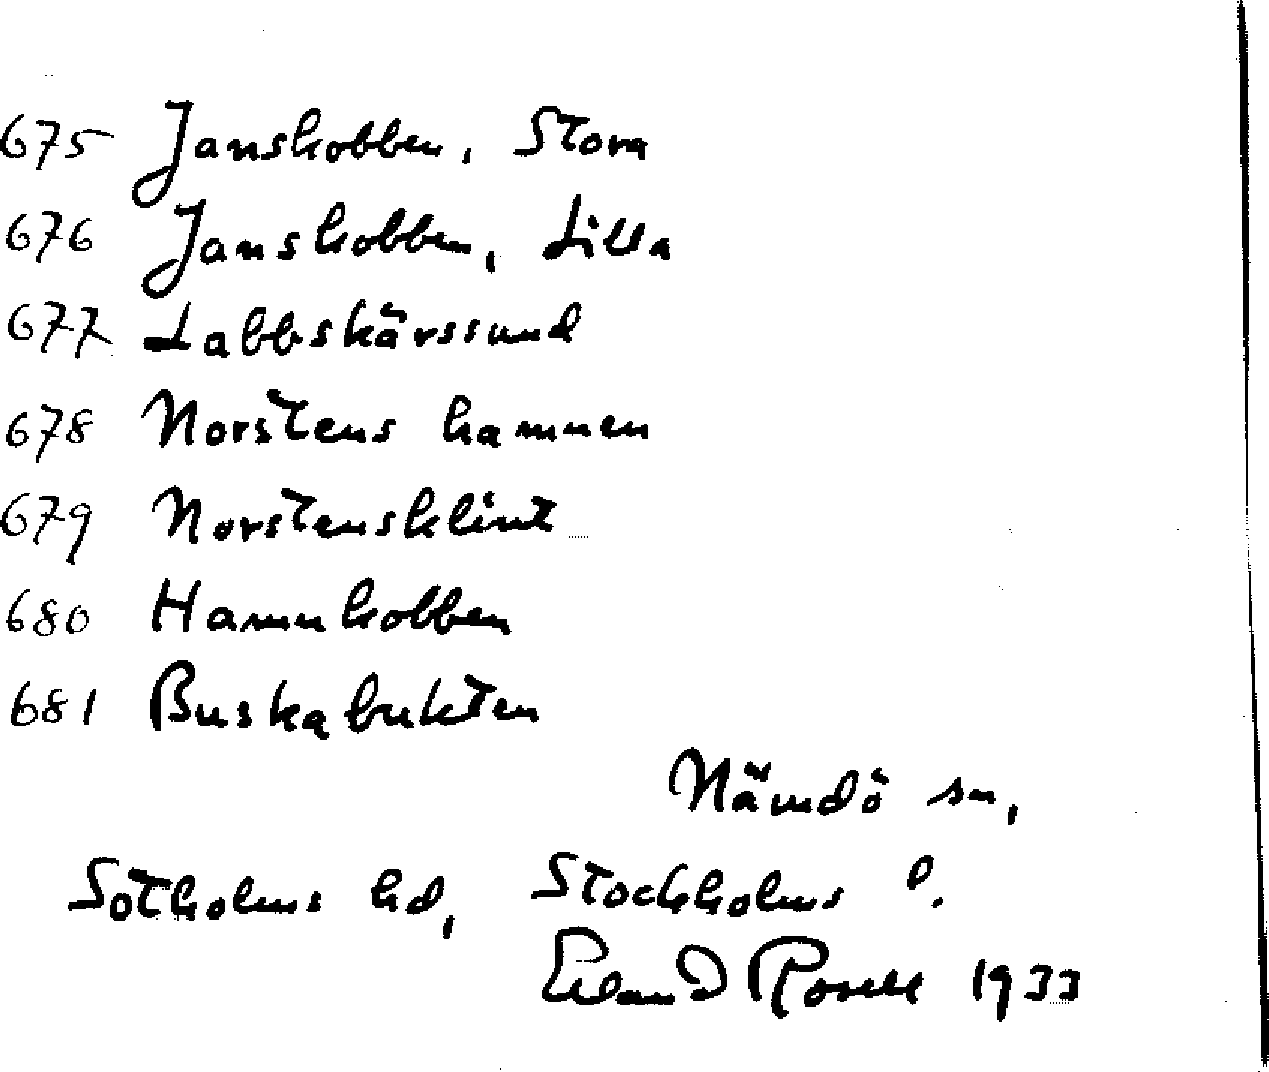 675 Janskobben, Stora
676 Janskobben, Lilla
677 Labbskärssund
678 Norstens hamnen
679 Norstensklint
680 Hamnkobben
681 Buskabukten
Nämdö sn,
Sotholms hd, Stockholms l.
Erland Rosell 1933